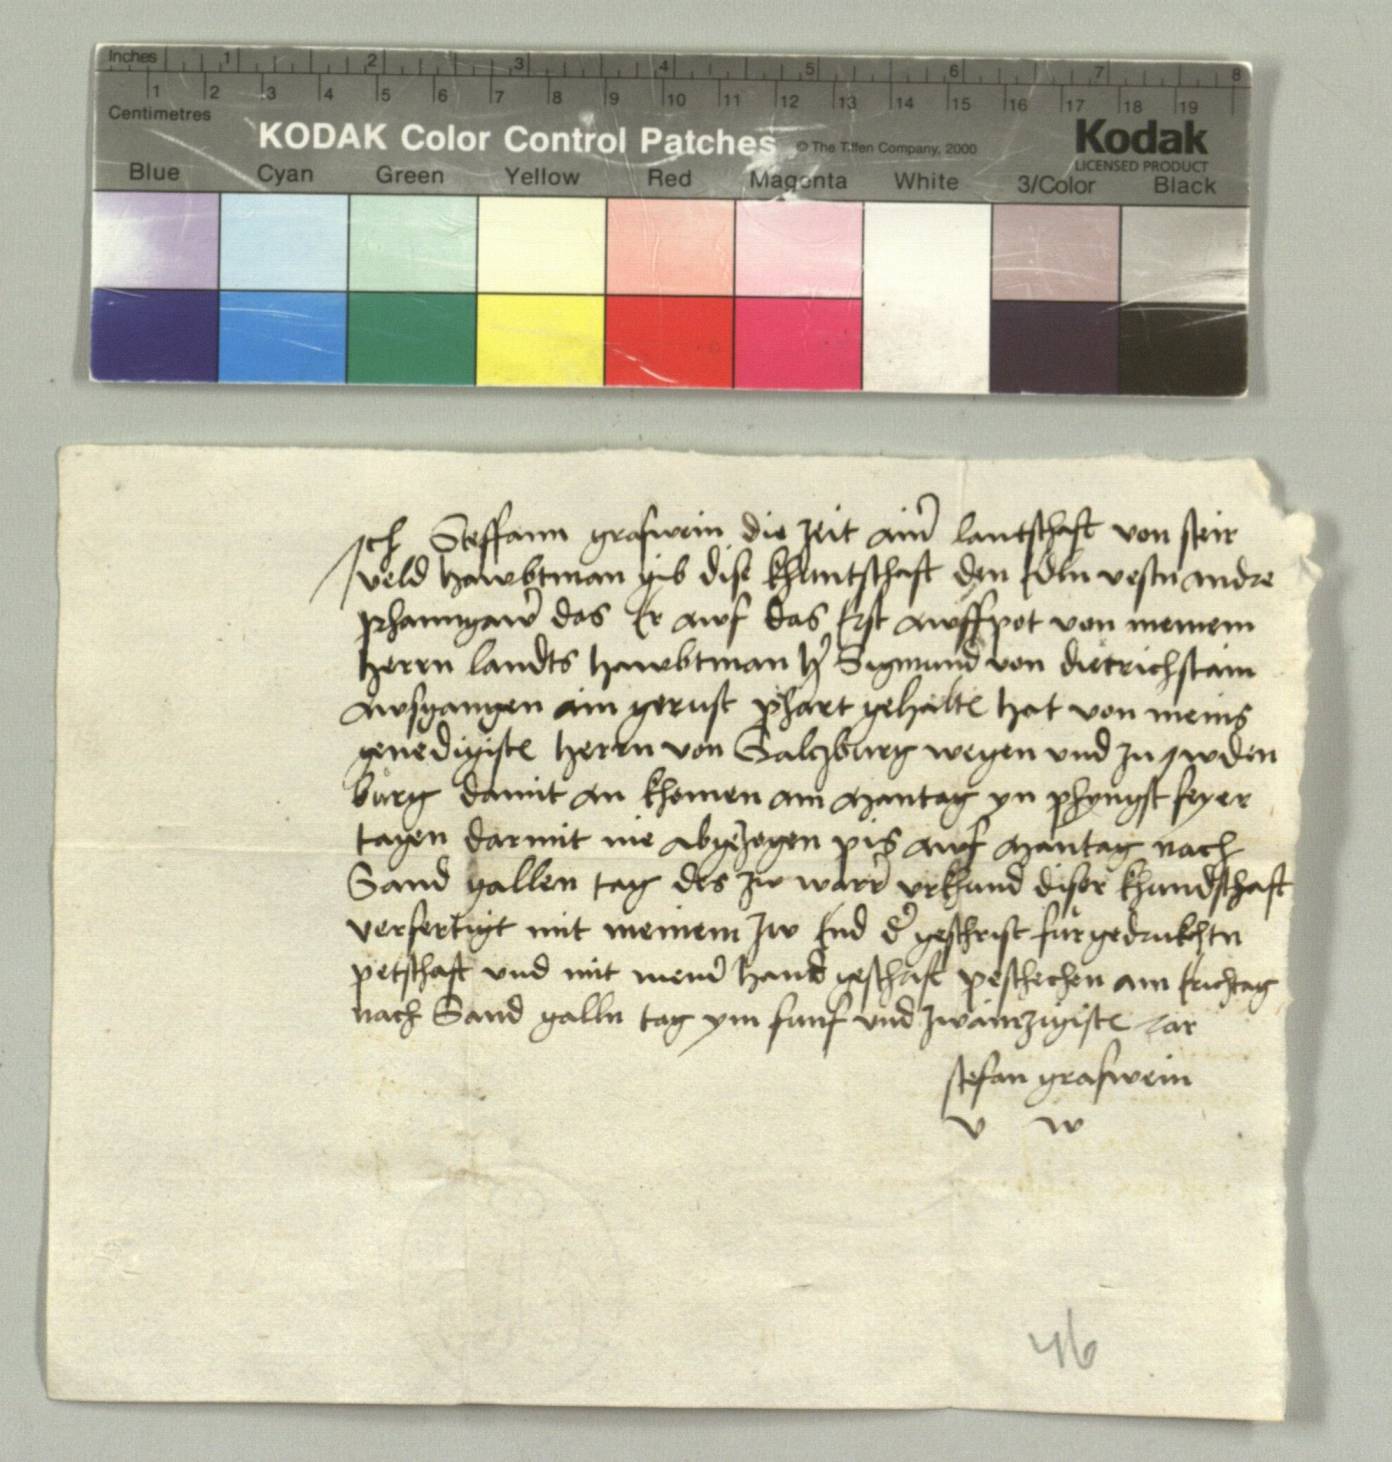 Inches 1 2 3 4 5 6 7 8
1 2 3 4 5 6 7 8 9 10 11 12 13 14 15 16 17 18 19
Centimetres
KODAK Color Control Patches © The Tiffen Company, 2000 Kodak
LICENSED PRODUCT
Blue Cyan Green Yellow Red Magenta White 3/Color Black
Ich Steffann graswein die zeit ainer lantschaft von steir
veld hawbtman gib dise khuntschaft den Edln vestn andre
das Er awf das Erst awffpot von meinem
herrn landts hawbtman her Sigmund von dietrichstain
awsgangen ain gerust phart gehalte hat von meins
genedigiste herrn von Salczburg wegen und zu Juden
burg damit an khomen am mantag yn phyngst feyer
tagen darmit nie abgezogen pis awf mantag nach
Sand gallen tag des zw warer urkhund diser khundschaft
verfertigt mit meinem zw End der geschrift furgedrukchtn
petschaft und mit mener hand geschrift peschechen am Erichtag
nach Sand galln tag ym funf und zwainzigiste Jar
stefan graswein
v w
46